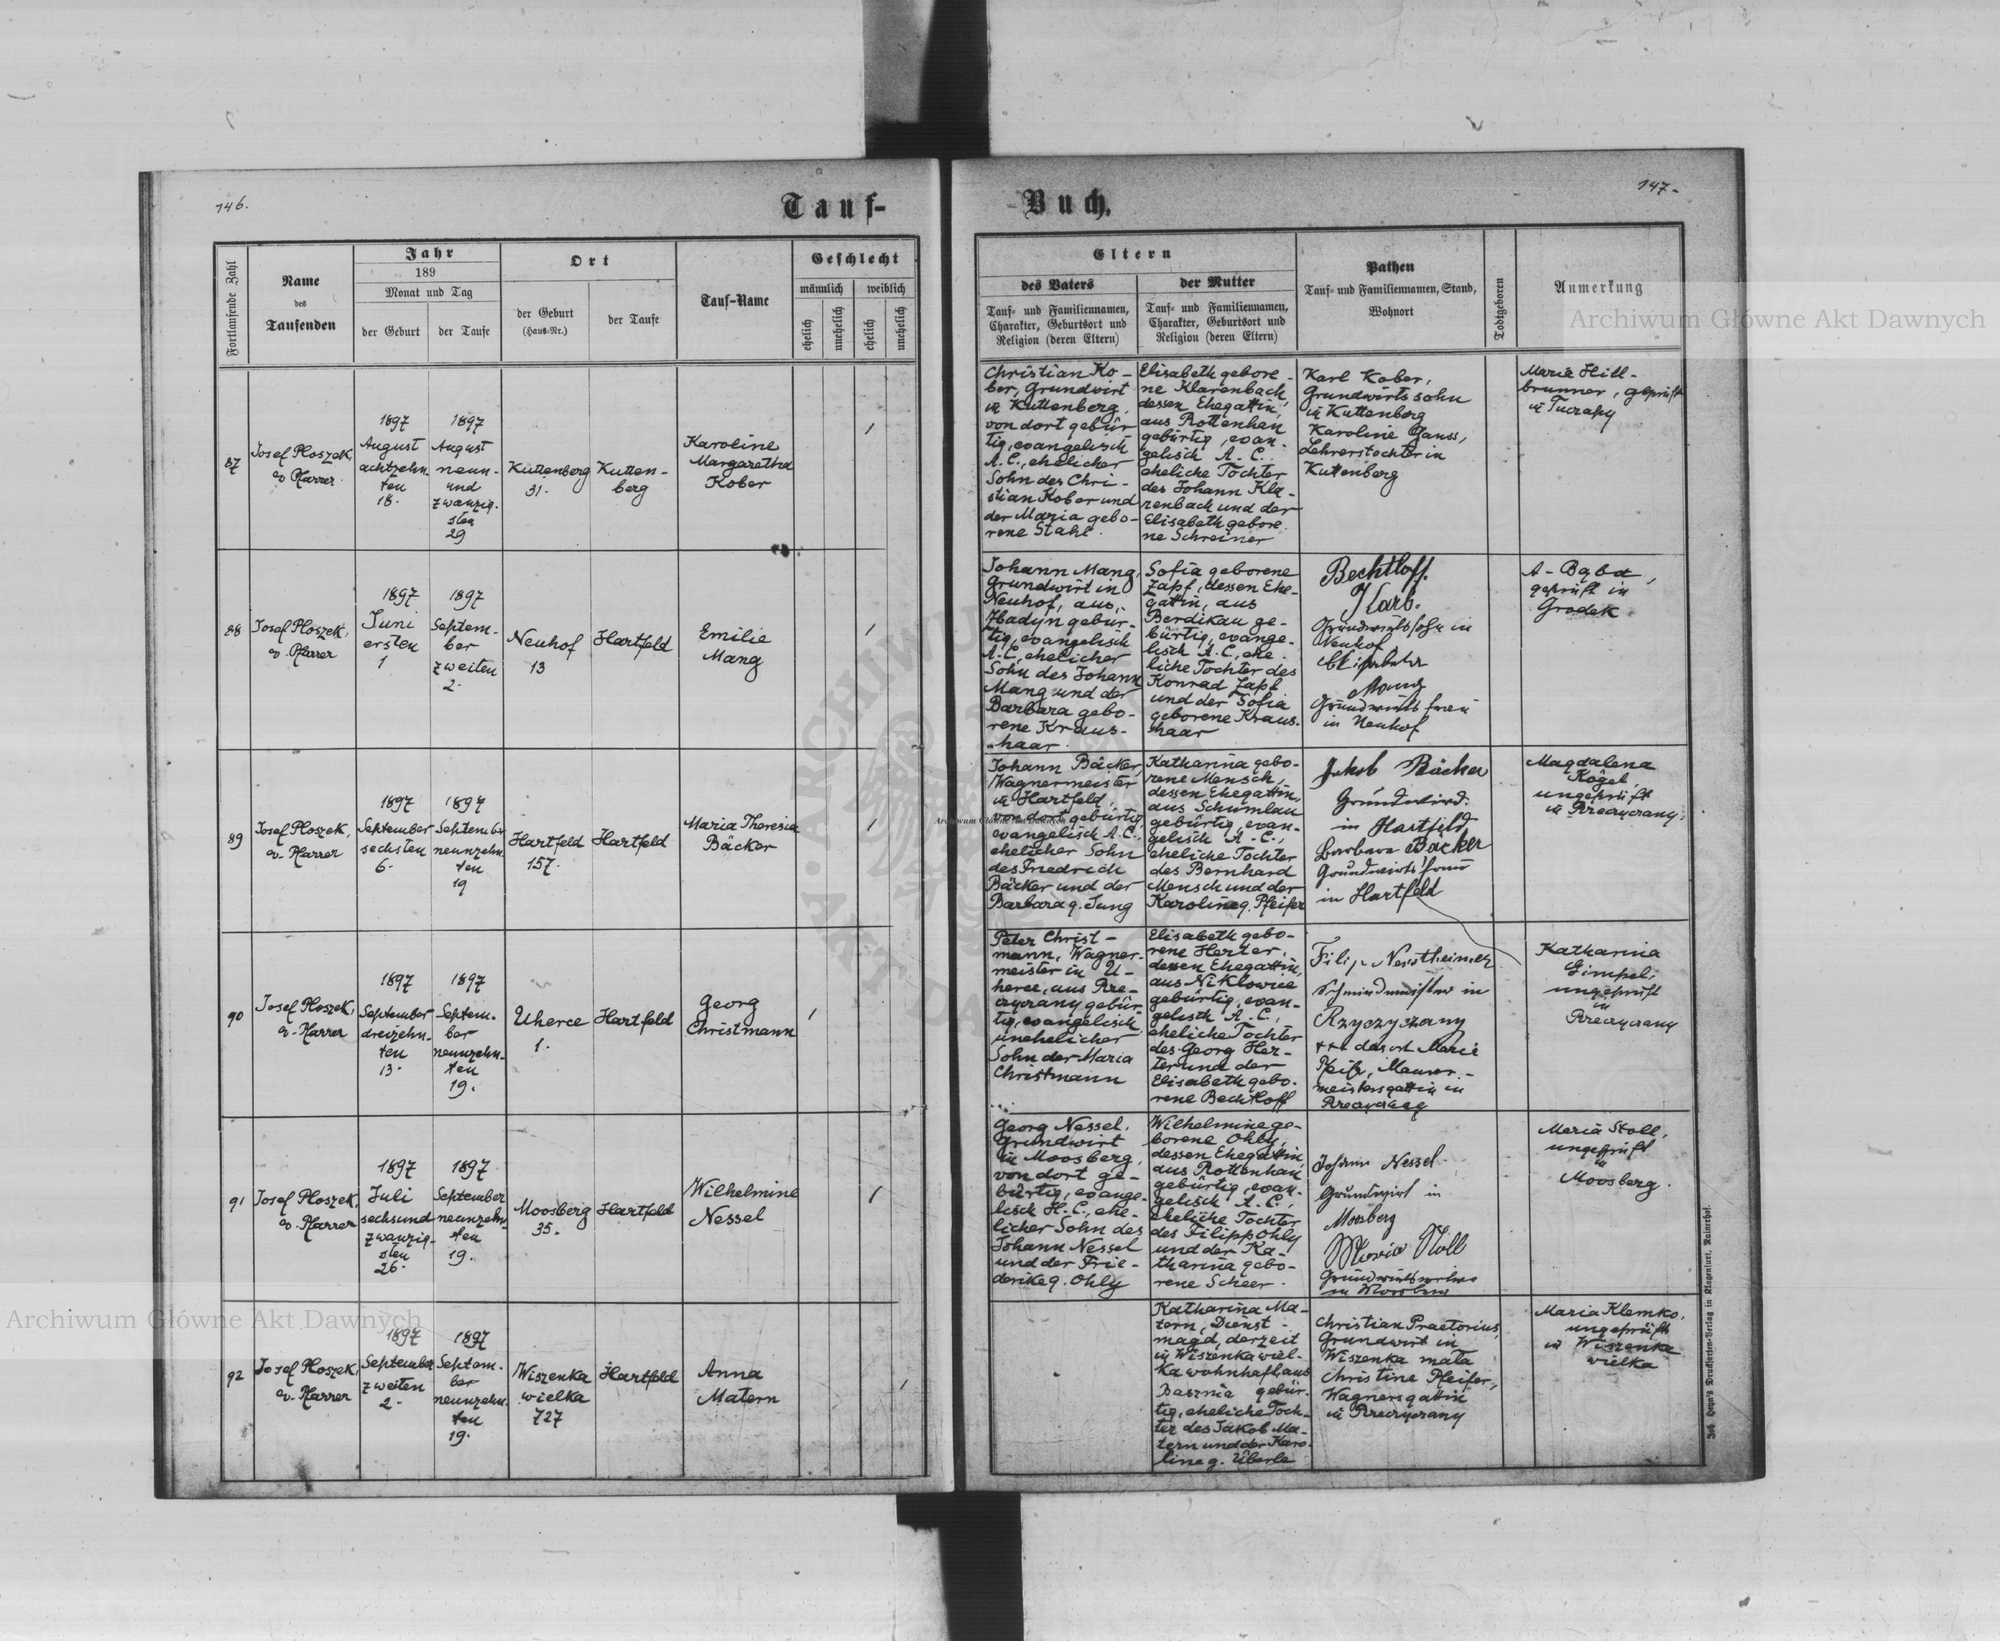 146.
Tauf-
Fortlaufende Zahl
Name
des
Taufenden
Jahr
189
Monat und Tag
der Geburt
der Taufe
Ort
der Geburt
(Haus-Nr.)
der Taufe
Tauf-Name
Geschlecht
männlich
weiblich
ehelich
unehelich
ehelich
unehelich
87
Josef Ploszek,
ev. Pfarrer
1897
August
achtzehn-
ten
18.
1897
August
neun-
und
zwanzig-
sten
29
Kuttenberg
31.
Kutten-
berg
Karoline
Margaretha
Kober
1
88
Josef Ploszek,
ev. Pfarrer
1897
Juni
ersten
1
1897
Septem-
ber
zweiten
2.
Neuhof
13
Hartfeld
Emilie
Mang
1
89
Josef Ploszek,
ev. Pfarrer
1897
September
sechsten
6.
1897
September
neunzehn-
ten
19
Hartfeld
157.
Hartfeld
Maria Theresia
Bäcker
1
90
Josef Ploszek,
ev. Pfarrer
1897
September
dreizehn-
ten
13.
1897
Septem-
ber
neunzehn-
ten
19.
Uherce
1.
Hartfeld
Georg
Christmann
1
91
Josef Ploszek,
ev. Pfarrer
1897
Juli
sechsund
zwanzig-
sten
26.
1897
September
neunzehn-
ten
19.
Moosberg
35.
Hartfeld
Wilhelmine
Nessel
1
92
Josef Ploszek,
ev. Pfarrer
1897
September
zweiten
2.
1897
Septem-
ber
neunzehn-
ten
19.
Wiszenka
wielka
727
Hartfeld
Anna
Matern
1
147.
Buch.
Eltern
des Vaters
Tauf- und Familiennamen,
Charakter, Geburtsort und
Religion (deren Eltern)
der Mutter
Tauf- und Familiennamen,
Charakter, Geburtsort und
Religion (deren Eltern)
Pathen
Tauf- und Familiennamen, Stand,
Wohnort
Todtgeboren
Anmerkung
Christian Ko-
ber, Grundwirt
in Kuttenberg,
von dort gebür
tig, evangelisch
A. C., ehelicher
Sohn des Chri-
stian Kober und
der Maria gebo-
rene Stahl.
Elisabeth gebore-
ne Klarenbach,
dessen Ehegattin,
aus Rottenhan
gebürtig, evan-
gelisch A. C.
eheliche Tochter
des Johann Kla-
renbach und der
Elisabeth gebore
ne Schreiner
Karl Kober,
Grundwirtssohn
in Kuttenberg
Karoline Ganss,
Lehrerstochter in
Kuttenberg
Maria Hill-
brunner, geprüft
in Tuczapy
Johann Mang,
Grundwirt in
Neuhof, aus
Hadyn gebür-
tig, evangelisch
A. C., ehelicher
Sohn des Johann
Mang und der
Barbara gebo-
rene Kraus-
haar.
Sofia geborene
Zapf, dessen Ehe-
gattin, aus
Berdikau ge-
bürtig, evange-
lisch A. C., ehe-
liche Tochter des
Konrad Zapf
und der Sofia
geborene Kraus-
haar
Bechtloff.
Karb.
Grundwirtssohn in
Neuhof
Elisabetha
Mang
Grundwirtsfrau
in Neuhof
A. Baba,
geprüft in
Grodek.
Johann Bäcker,
Wagnermeister
in Hartfeld,
von dort gebürtig
evangelisch A. C.,
ehelicher Sohn
des Friedrich
Bäcker und der
Barbara g. Jung
Katharina gebo-
rene Mensch,
dessen Ehegattin,
aus Schumlau
gebürtig, evan-
gelisch A. C.,
eheliche Tochter
des Bernhard
Mensch und der
Karoline g. Pfeifer
Jakob Bäcker
Grundwird.
in Hartfeld
Barbara Bäcker
Grundwirts frau
in Hartfeld
Magdalena
Kögel,
ungeprüft
in Rzeczyczany
Peter Christ-
mann, Wagner-
meister in U-
herce, aus Rze-
czyczany gebür
tig, evangelisch
unehelicher
Sohn der Maria
Christmann
Elisabeth gebo-
rene Herter,
dessen Ehegattin,
aus Niklowice
gebürtig, evan-
gelisch A. C.,
eheliche Tochter
des Georg Her-
ter und der
Elisabeth gebo-
rene Bechtloff
Filip
Schmiedmeister in
Rzyczyczany
+++ das ist Maria
Pfeifer, Maurer-
meistersgattin in
Katharina
Gimpel,
ungeprüft
in
Rzeczyczany
Georg Nessel,
Grundwirt
in Moosberg,
von dort ge-
bürtig, evange-
lisch H. C., ehe-
licher Sohn des
Johann Nessel
und der Frie-
derike g. Ohly
Wilhelmine ge-
borene Ohly,
dessen Ehegattin
aus Rottenhan
gebürtig, evan-
gelisch A. C.,
eheliche Tochter
des Filipp Ohly
und der Ka-
tharina gebo-
rene Scheer.
Johann Nessel
Grundwirt in
Moosberg
Maria Stoll
in Moosberg
Maria Stoll,
ungeprüft
in
Moosberg.
Katharina Ma-
tern, Dienst-
magd, derzeit
in Wiszenka wiel-
ka wohnhaft, aus
Basznia gebür-
tig, eheliche Toch-
ter des Jakob Ma-
tern und der Karo-
line g. Überle
Christian Praetorius,
Grundwirt in
Wiszenka mała
Christine Pfeifer,
Wagnersgattin
in Rzeczyczany
Maria Klemko,
ungeprüft
in Wiszenka
wielka
Joh. Heyn's Drucksorten-Verlag in Klagenfurt, Rainerhof.
Archiwum Główne Akt Dawnych
Archiwum Główne Akt Dawnych
Archiwum Główne Akt Dawnych